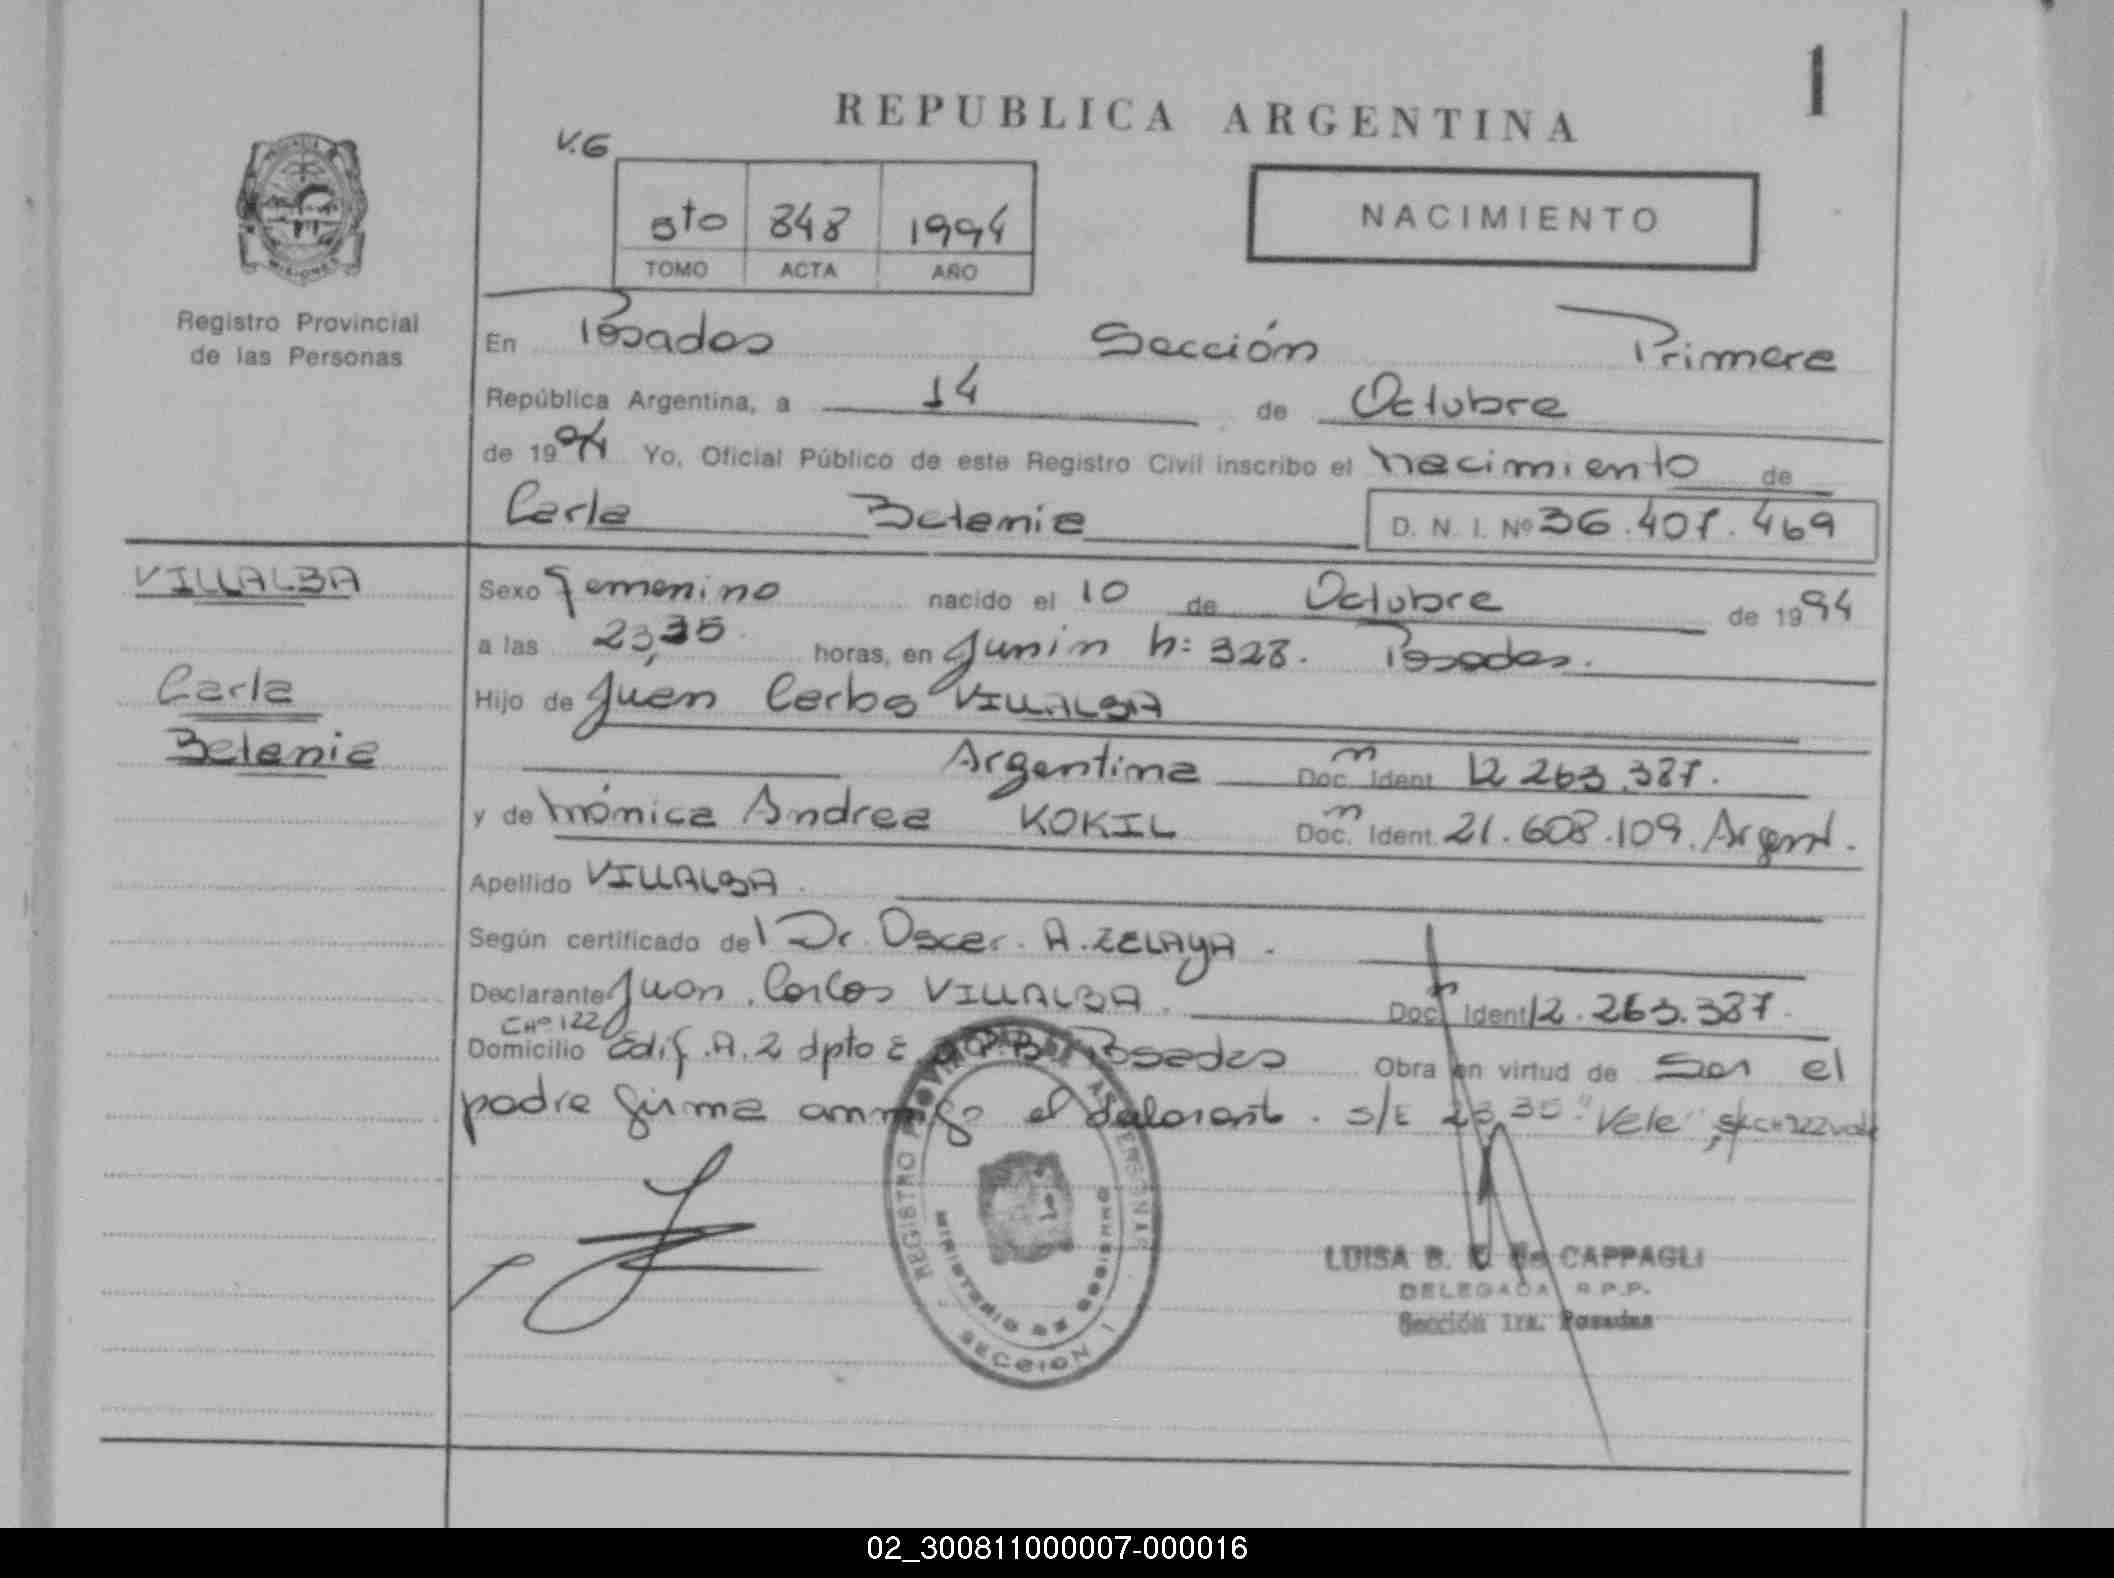 1
REPUBLICA ARGENTINA
V.G
5to 848 1994
TOMO ACTA AÑO
NACIMIENTO
MISIONES
Registro Provincial
de las Personas
En Posadas Sección Primera
República Argentina, a 14 de Octubre
de 1994 Yo, Oficial Público de este Registro Civil inscribo el nacimiento de
Carla Betania D. N. I. Nº 36.407.469
VILLALBA
Carla
Betania
Sexo femenino nacido el 10 de Octubre de 1994
a las 23,35 horas, en Junin n: 328. Posadas.
Hijo de Juan Carlos VILLALBA
Argentina Doc. Ident. 12 263.387.
y de Mónica Andrea KOKIL Doc. Ident. 21.608.109. Argent.
Apellido VILLALBA.
Según certificado del Dr. Oscar. A. ZELAYA.
Declarante Juan Carlos VILLALBA. Doc. Ident 12.263.387.
CHº 122
Domicilio Edif. A. 2 dpto E P.B. Posadas Obra en virtud de ser el
padre firma conmigo el declarante. s/E 23,35 "Vale",
REGISTRO PROVINCIAL DE LAS PERSONAS
MINISTERIO DE GOBIERNO
SECCION 1
LUISA B. de CAPPAGLI
DELEGADA R.P.P.
Sección 1ra. Posadas
02_300811000007-000016